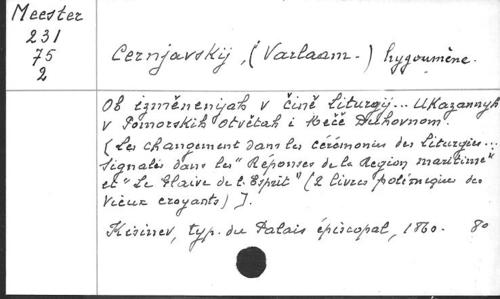 Meester
231
75
2
Cernjavskij, (Varlaam-) hygoumène.
Ob izměnenijah v čině Liturgij... Ukazannyh
v Pomorskih Otvětah i Mečě Duhovnom.
(Les changement dans les cérémonies des Liturgies...
signalés dans les "Réponses de la Region maritime"
et "Le Glaive de l'Esprit" (2 livres polémiques des
Vieux croyants) ].
Kišinev, typ. du Palais épiscopal, 1860. 8o